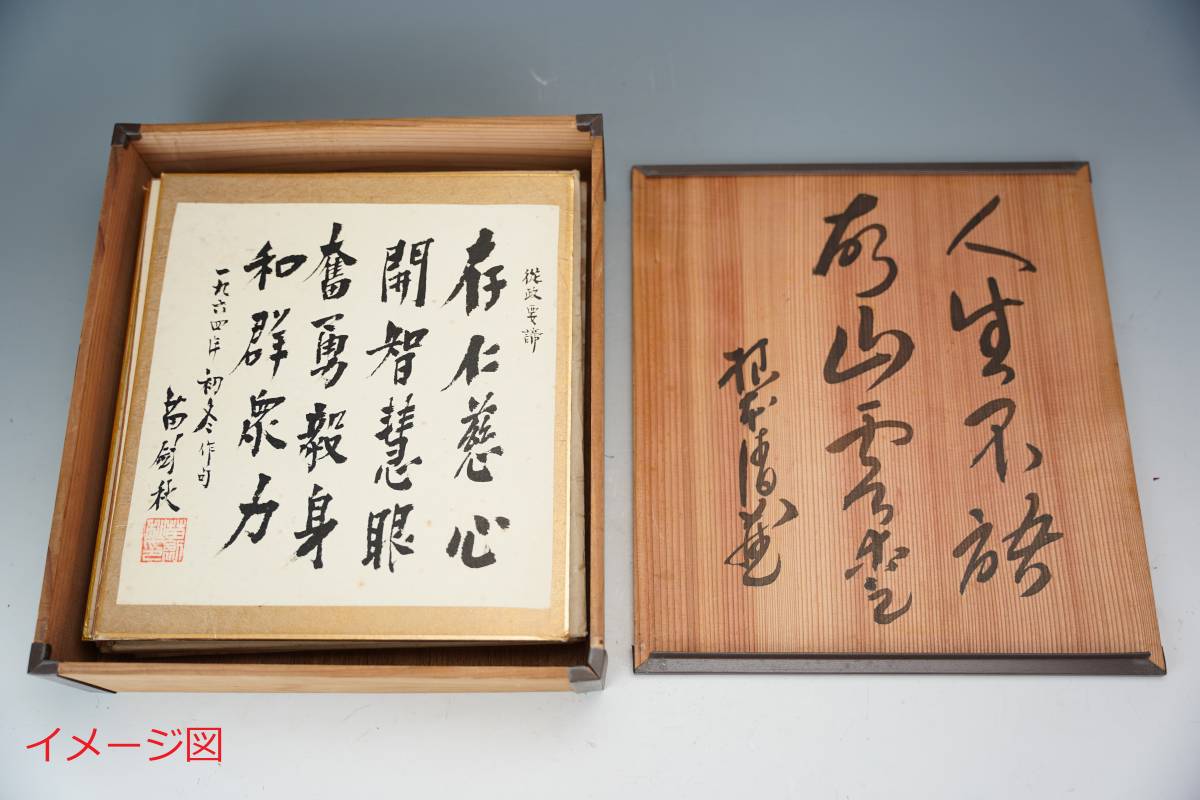 從政要諦
存仁慈心
開智慧眼
奮勇毅身
和群衆力
一九六四年初冬作句
苗剣秋
人生不語
故山雲
イメージ図